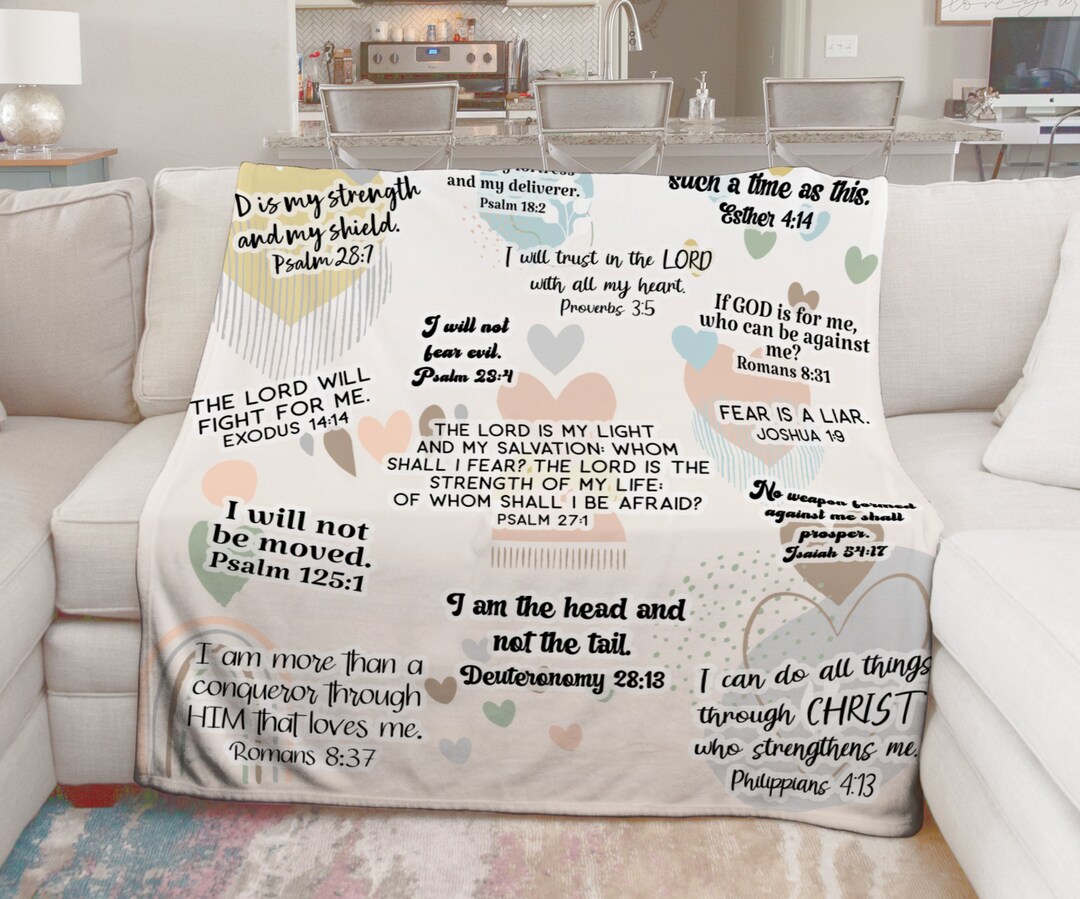 D is my strength
and my shield.
Psalm 28:7
my fortress
and my deliverer.
Psalm 18:2
such a time as this.
Esther 4:14
I will trust in the LORD
with all my heart.
Proverbs 3:5
If GOD is for me,
who can be against
me?
Romans 8:31
I will not
fear evil.
Psalm 23:4
THE LORD WILL
FIGHT FOR ME.
EXODUS 14:14
FEAR IS A LIAR.
JOSHUA 1:9
THE LORD IS MY LIGHT
AND MY SALVATION: WHOM
SHALL I FEAR? THE LORD IS THE
STRENGTH OF MY LIFE:
OF WHOM SHALL I BE AFRAID?
PSALM 27:1
No weapon formed
against me shall
prosper.
Isaiah 54:17
I will not
be moved.
Psalm 125:1
I am the head and
not the tail.
Deuteronomy 28:13
I am more than a
conqueror through
HIM that loves me.
Romans 8:37
I can do all things
through CHRIST
who strengthens me.
Philippians 4:13